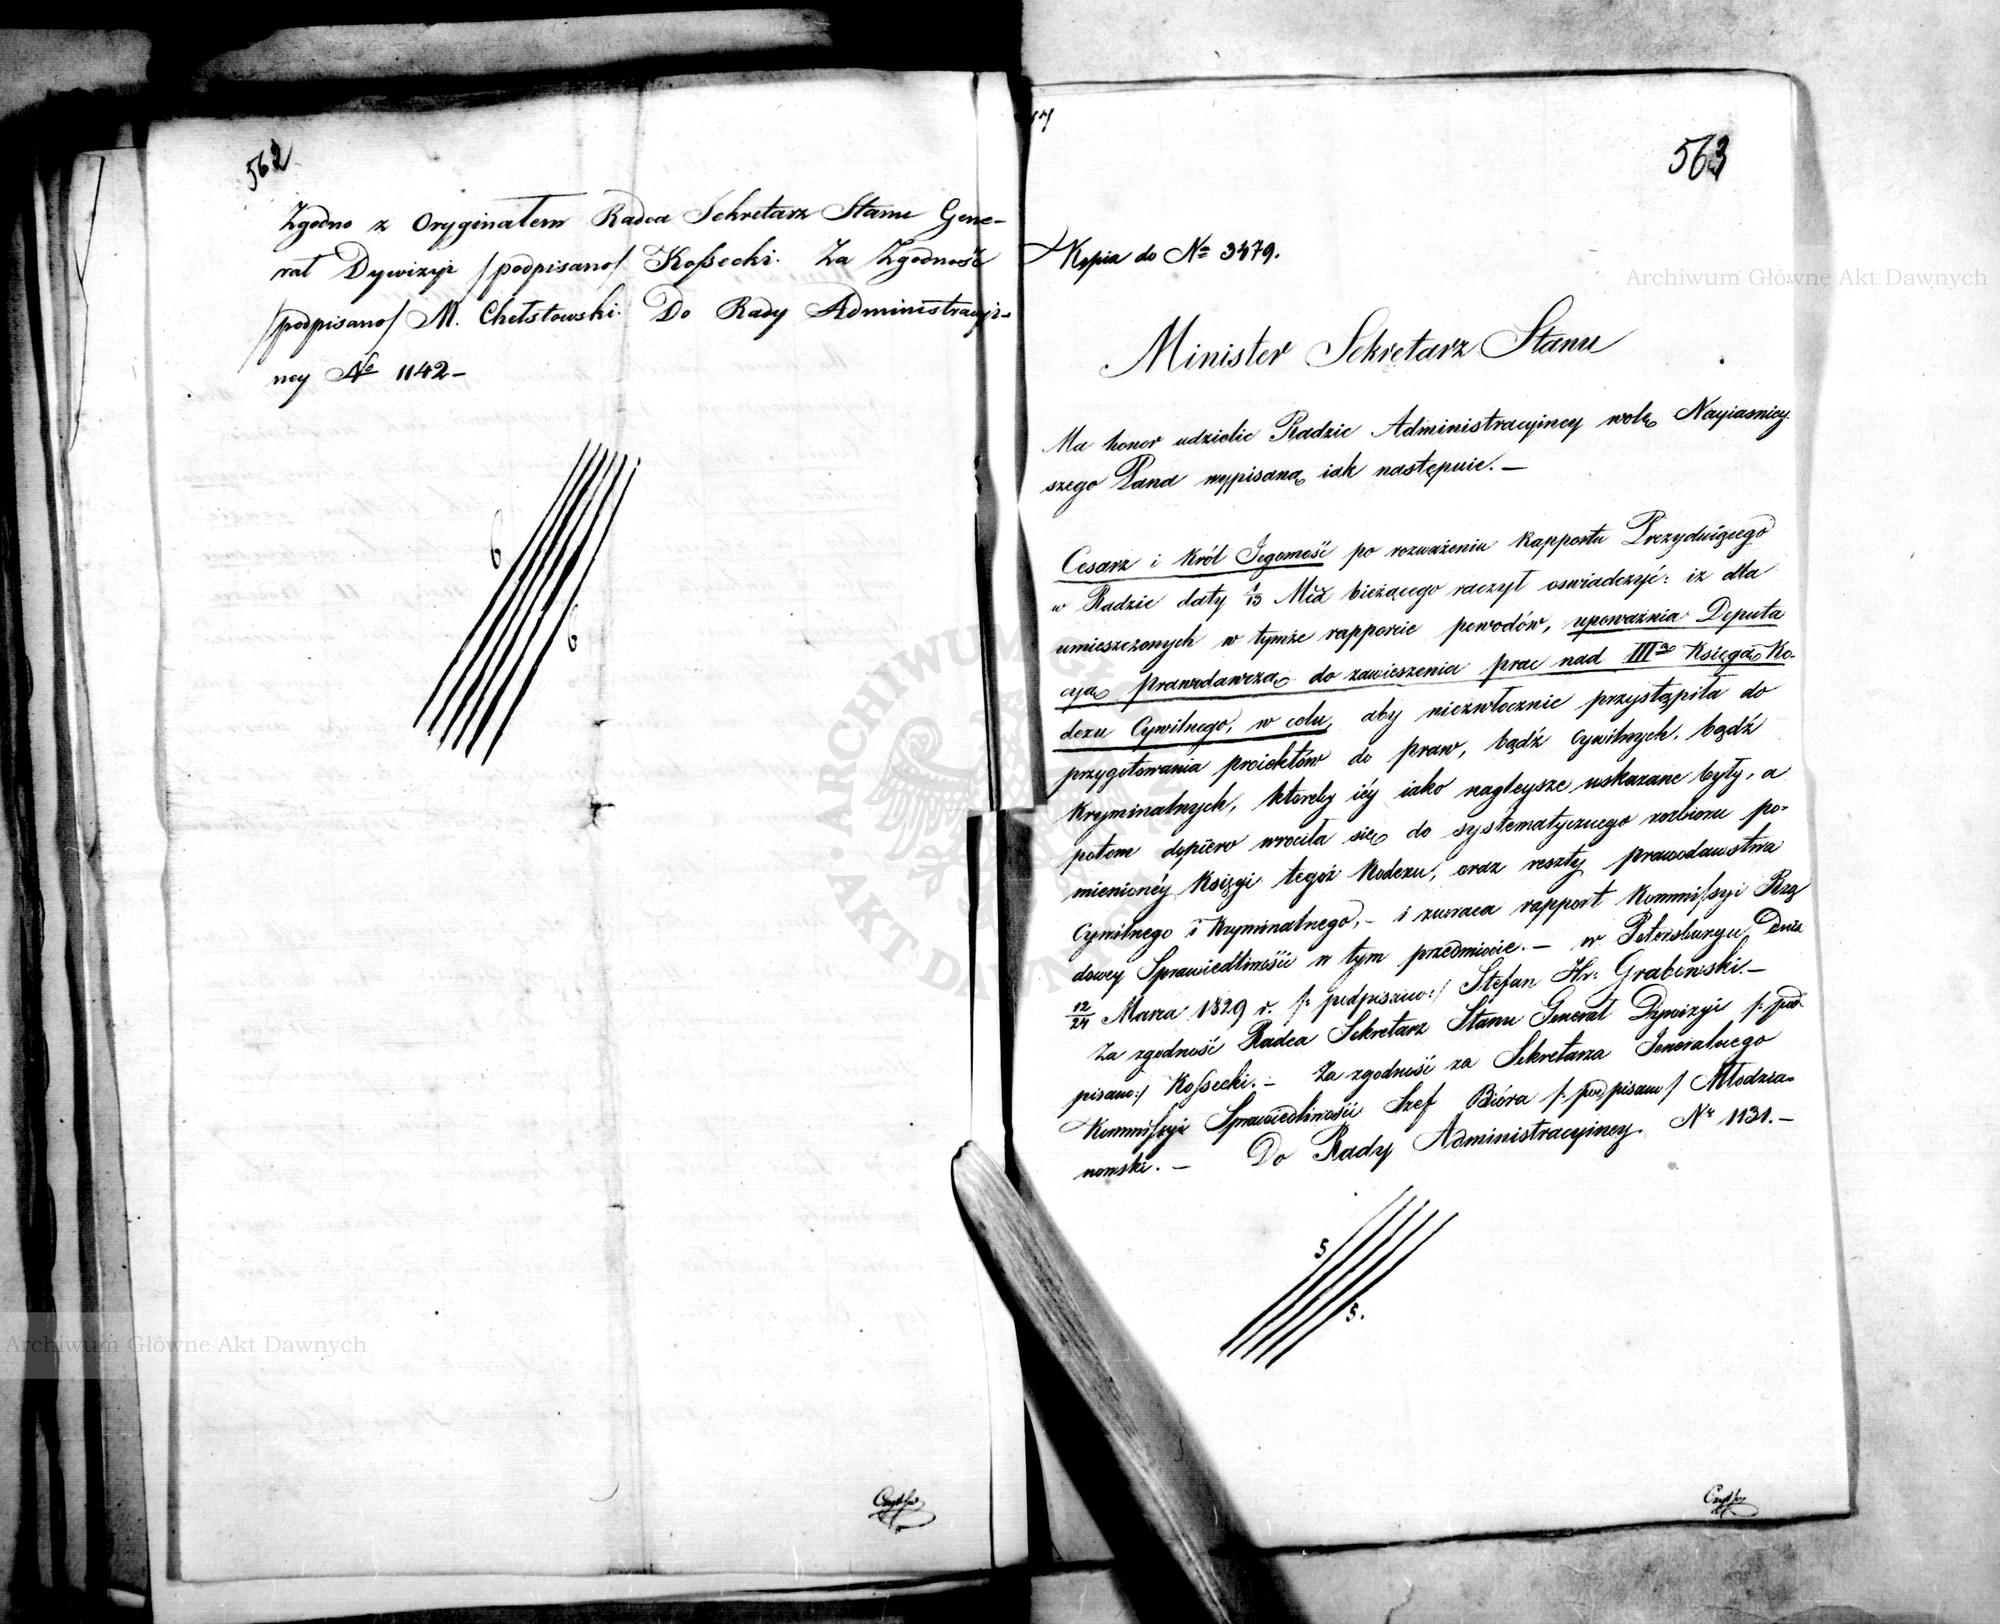 562
Zgodno z Oryginałem Radca Sekretarz Stanu Gene-
rał Dywizyi /podpisano/ Kossecki. Za Zgodność
/podpisano/ M. Chełstowski. Do Rady Administracyi-
ney No 1142 -
6
6
563
Kopia do No 3479.
Minister Sekretarz Stanu
Ma honor udzielić Radzie Administracyiney wolę Nayiasniey-
szego Pana wypisaną iak następuie. —
Cesarz i Król Jegomość po rozważeniu Rapportu Prezyduiącego
w Radzie daty 1/13 Mca bieżącego raczył oswiadczyć: iż dla
umieszczonych w tymże rapporcie powodów, upoważnia Deputa
cyą Prawodawczą do zawieszenia prac nad IIIą Księgą Ko-
dexu Cywilnego, w celu, aby niezwłocznie przystąpiła do
przygotowania proiektów do praw, bądź Cywilnych, bądź
Kryminalnych, któreby iéy iako nagleysze wskazane były, a
potem dopiero wrociła się do systematycznego rozbioru po-
mienionéy Księgi tegoż Kodexu, oraz reszty prawodawstwa
Cywilnego i Kryminalnego, - i zwraca rapport Kommissyi Rzą
dowey Sprawiedliwości w tym przedmiocie. — w Petersburgu Dnia
12/24 Marca 1829 r. /: podpisano:/ Stefan Hr: Grabowski. —
Za zgodność Radca Sekretarz Stanu Generał Dywizyi /: pod-
pisano:/ Kossecki. — Za zgodność za Sekretarza Jeneralnego
Kommissyi Sprawiedliwości Szef Bióra /: podpisano / Młodzia-
nowski. — Do Rady Administracyiney. Nr 1131. —
5
5.
Archiwum Główne Akt Dawnych
Archiwum Główne Akt Dawnych